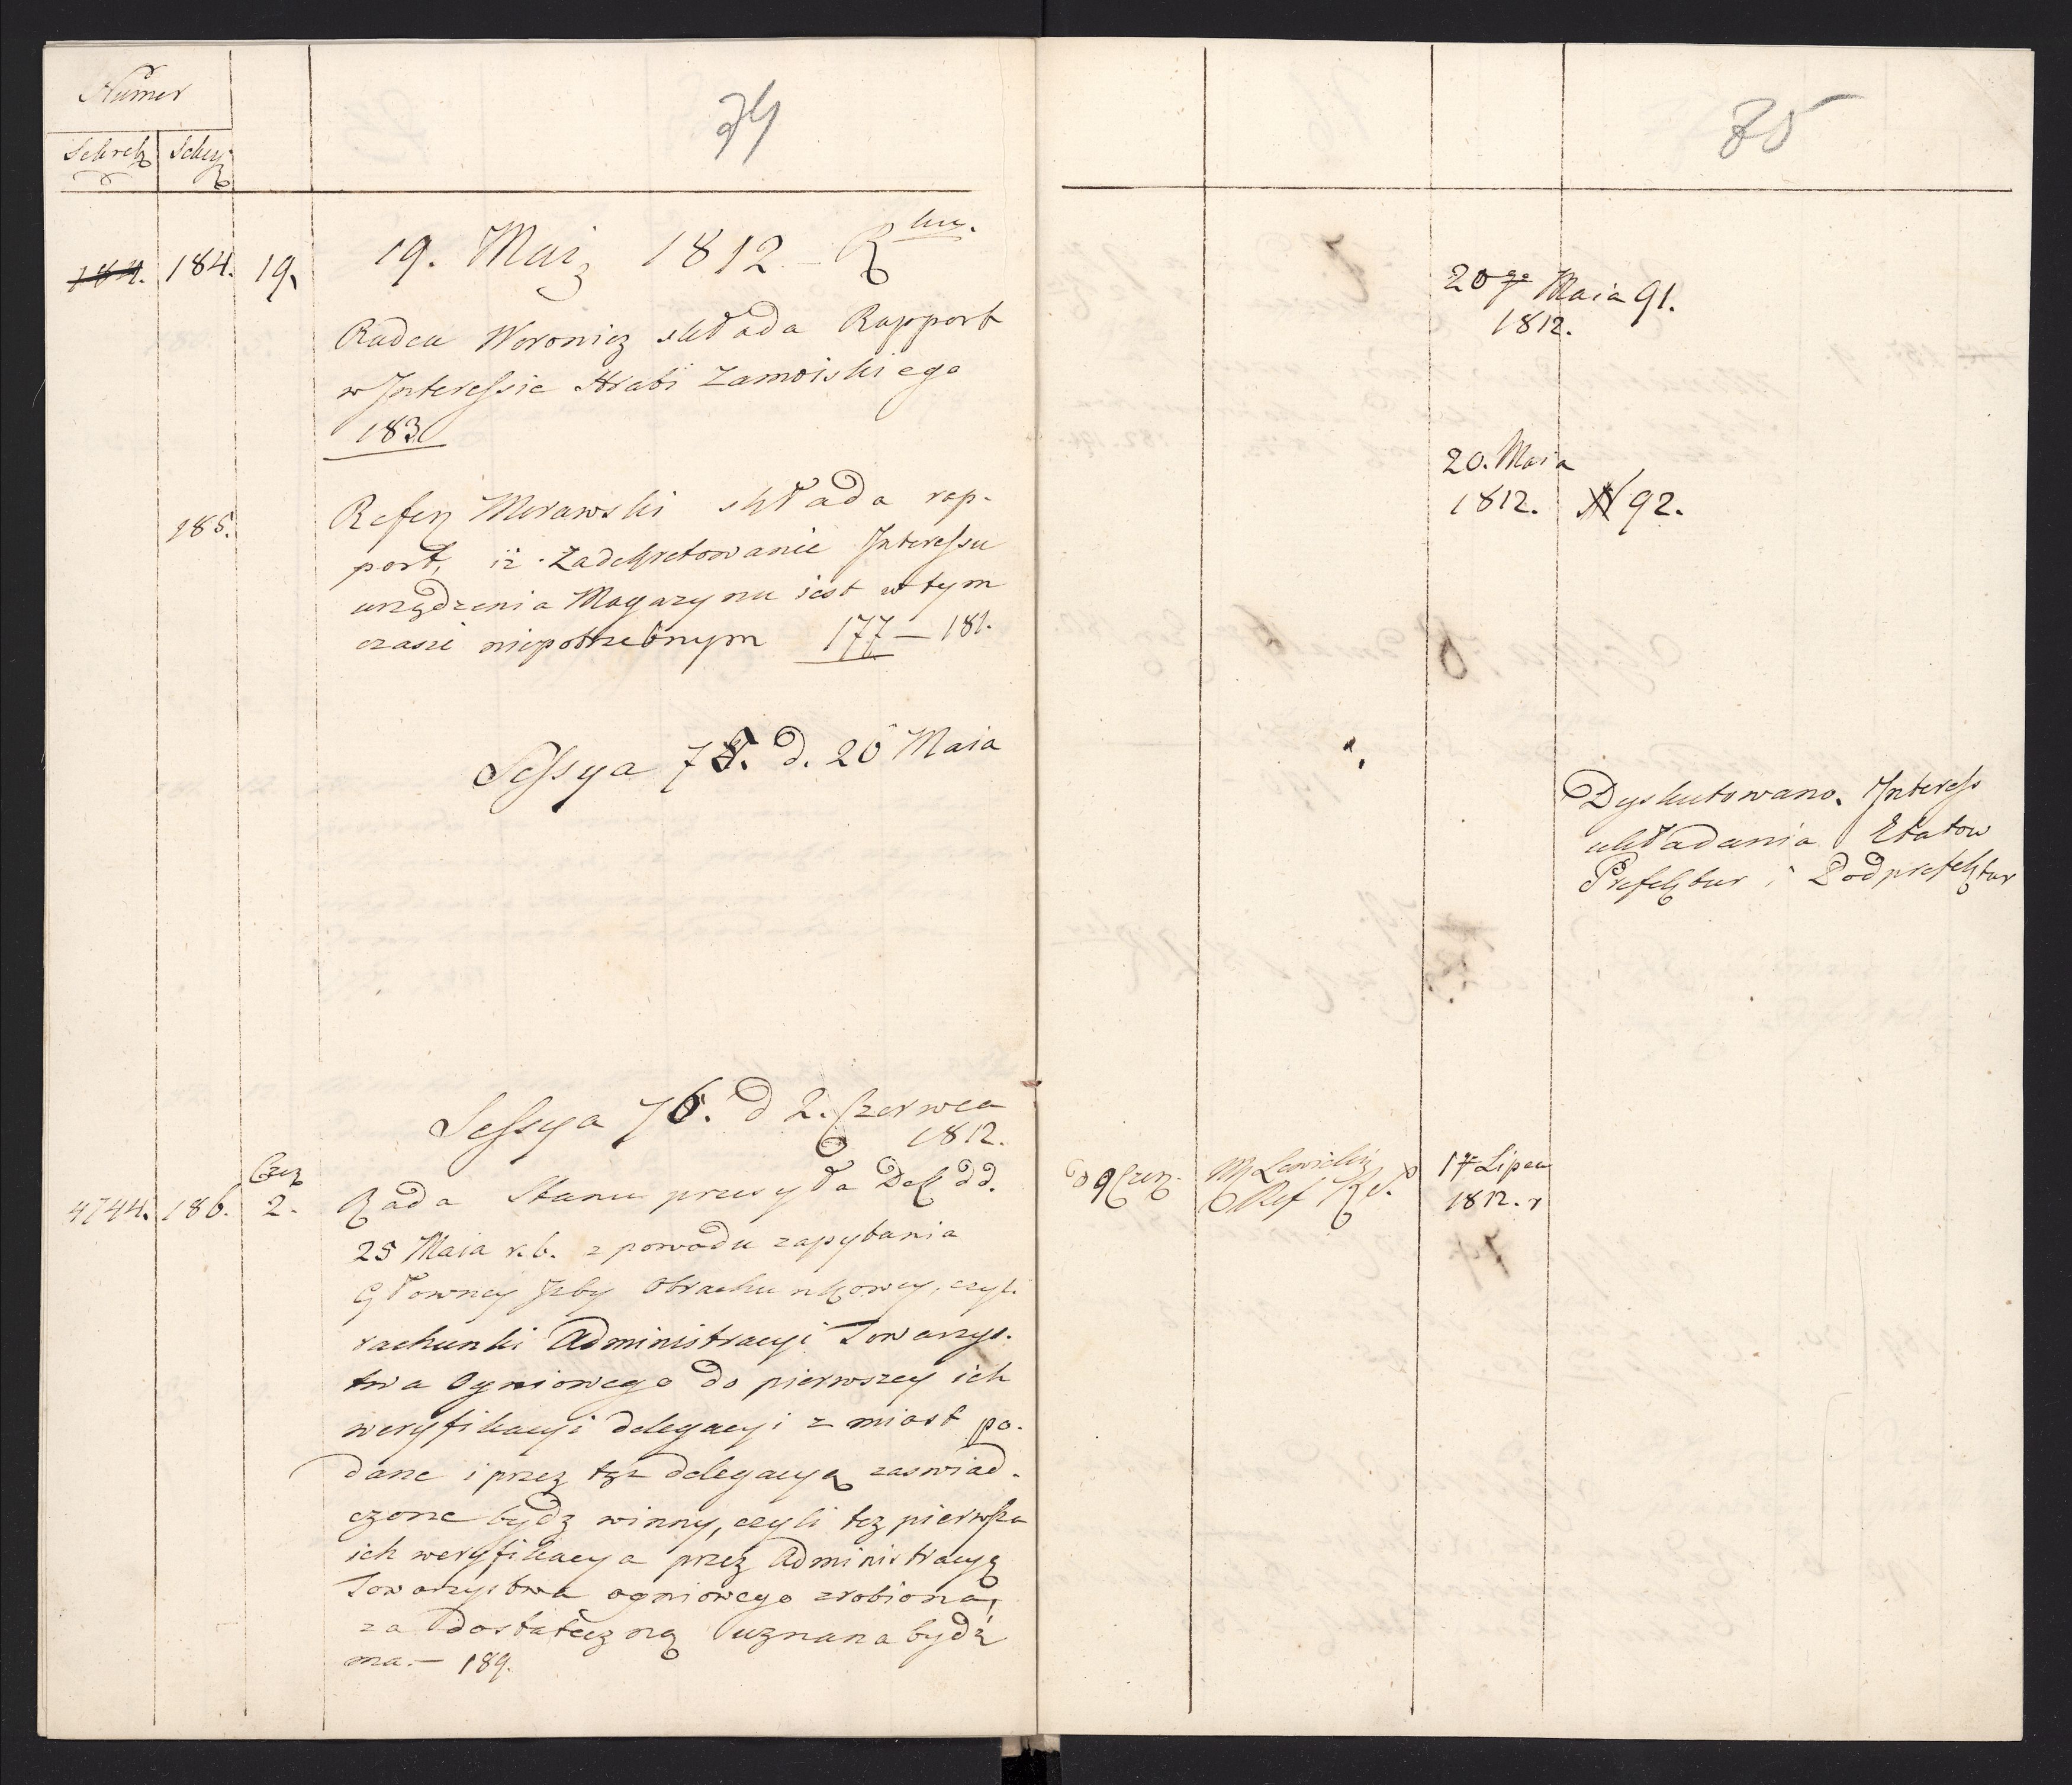 Numer
74
Sekret
Sekcy
19. Maja 1812 Rku.
184. 184. 19.
Radca Woronicz składa Rapport
w Interessie Hrabi Zamoiskiego
183
185.
Refer Morawski składa rap-
port, iż Zadekretowanie Interessu
urządzenia Magazynu iest w tym
czasie niepotrzebnym 177 — 181.
Sessya 75. d. 20 Maia
Sessya 76. d 2. Czerwca
1812.
4744. 186. Czer
2.
Rada Stanu przesyła Dek dd.
25 Maia r. b. z powodu zapytania
Głowney Izby Obrachunkowey, czyli
rachunki Administracyi Towarzys-
twa Ogniowego do pierwszey ich
weryfikacyi delegacyi z miast po-
dane i przez też delegacyą zaswiad-
czone bydz winny, czyli tez pierwsza
ich weryfikacya przez Administracyą
Towarzystwa ogniowego zrobiona,
za dostateczną uznana bydź
ma. — 189.
75
20go Maia 91.
1812.
20. Maia
1812. N 92.
Dyskutowano Interess
układania Etatow
Prefektur i Podprefektur
D 9 Czer.
Łewicki
Ref
17 Lipca
1812. r